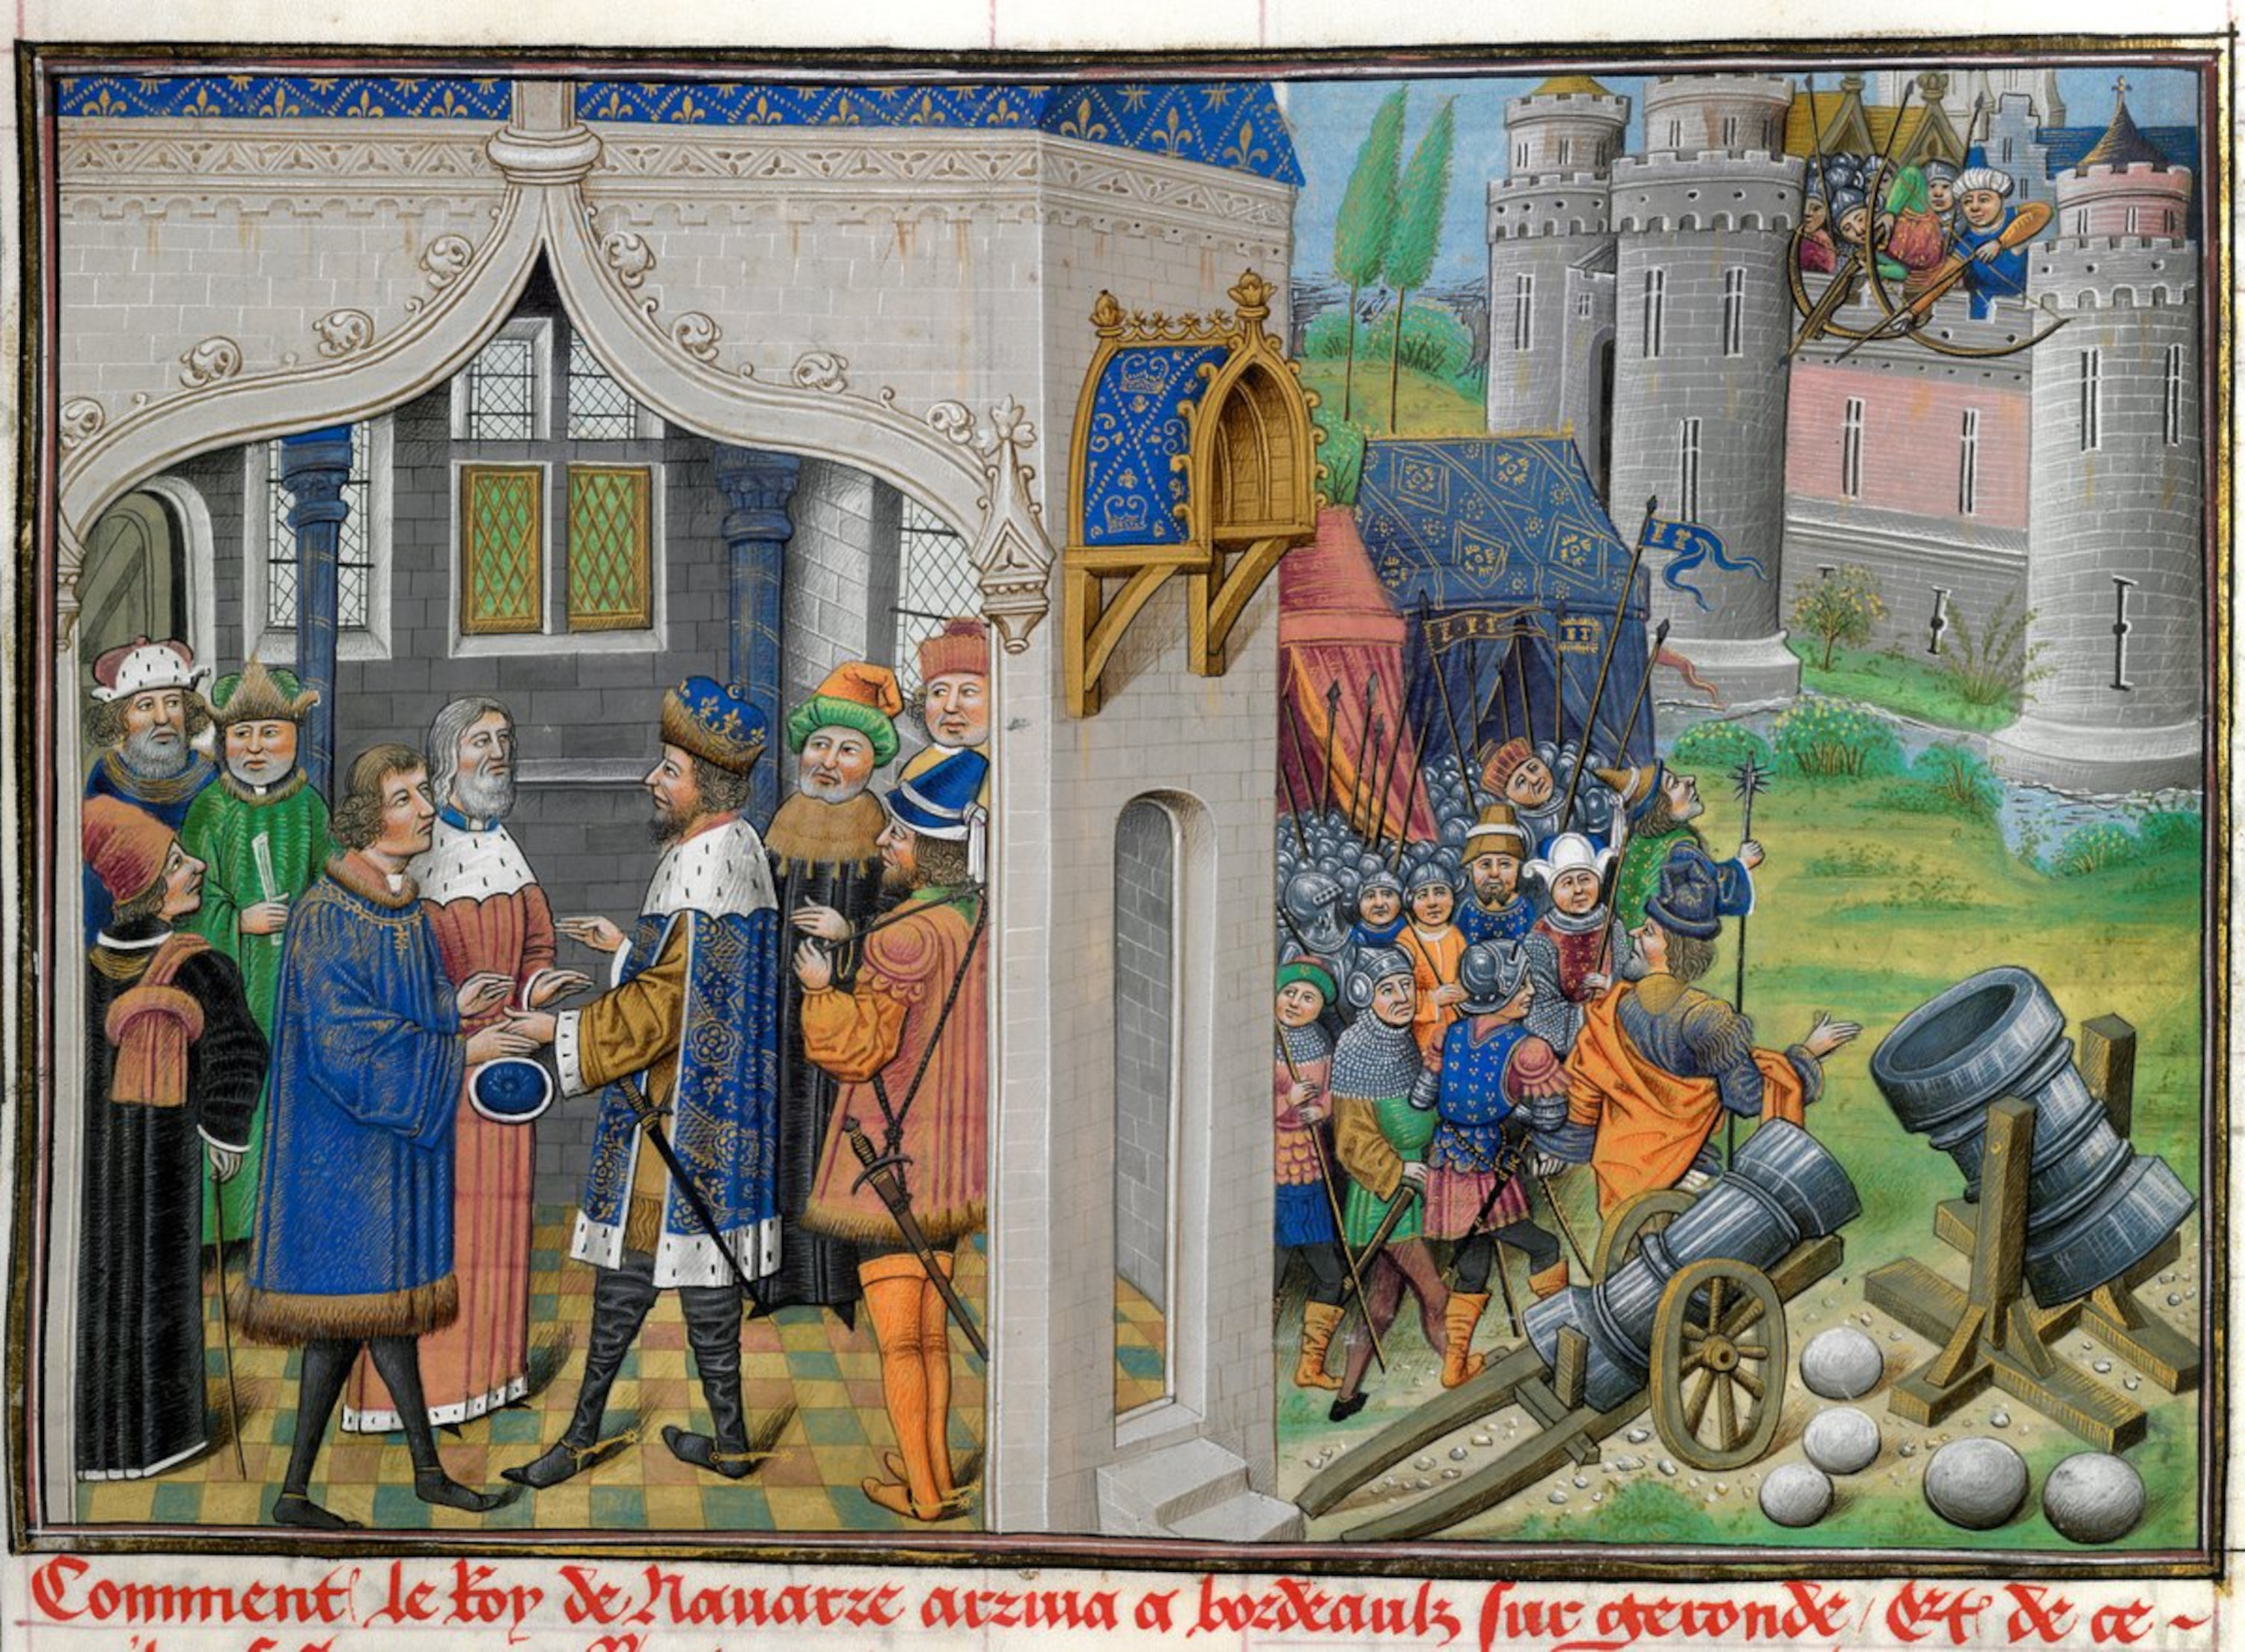 Comment le Roy de Nauarre arriua a bordeaulx sur geronde / Et de ce-